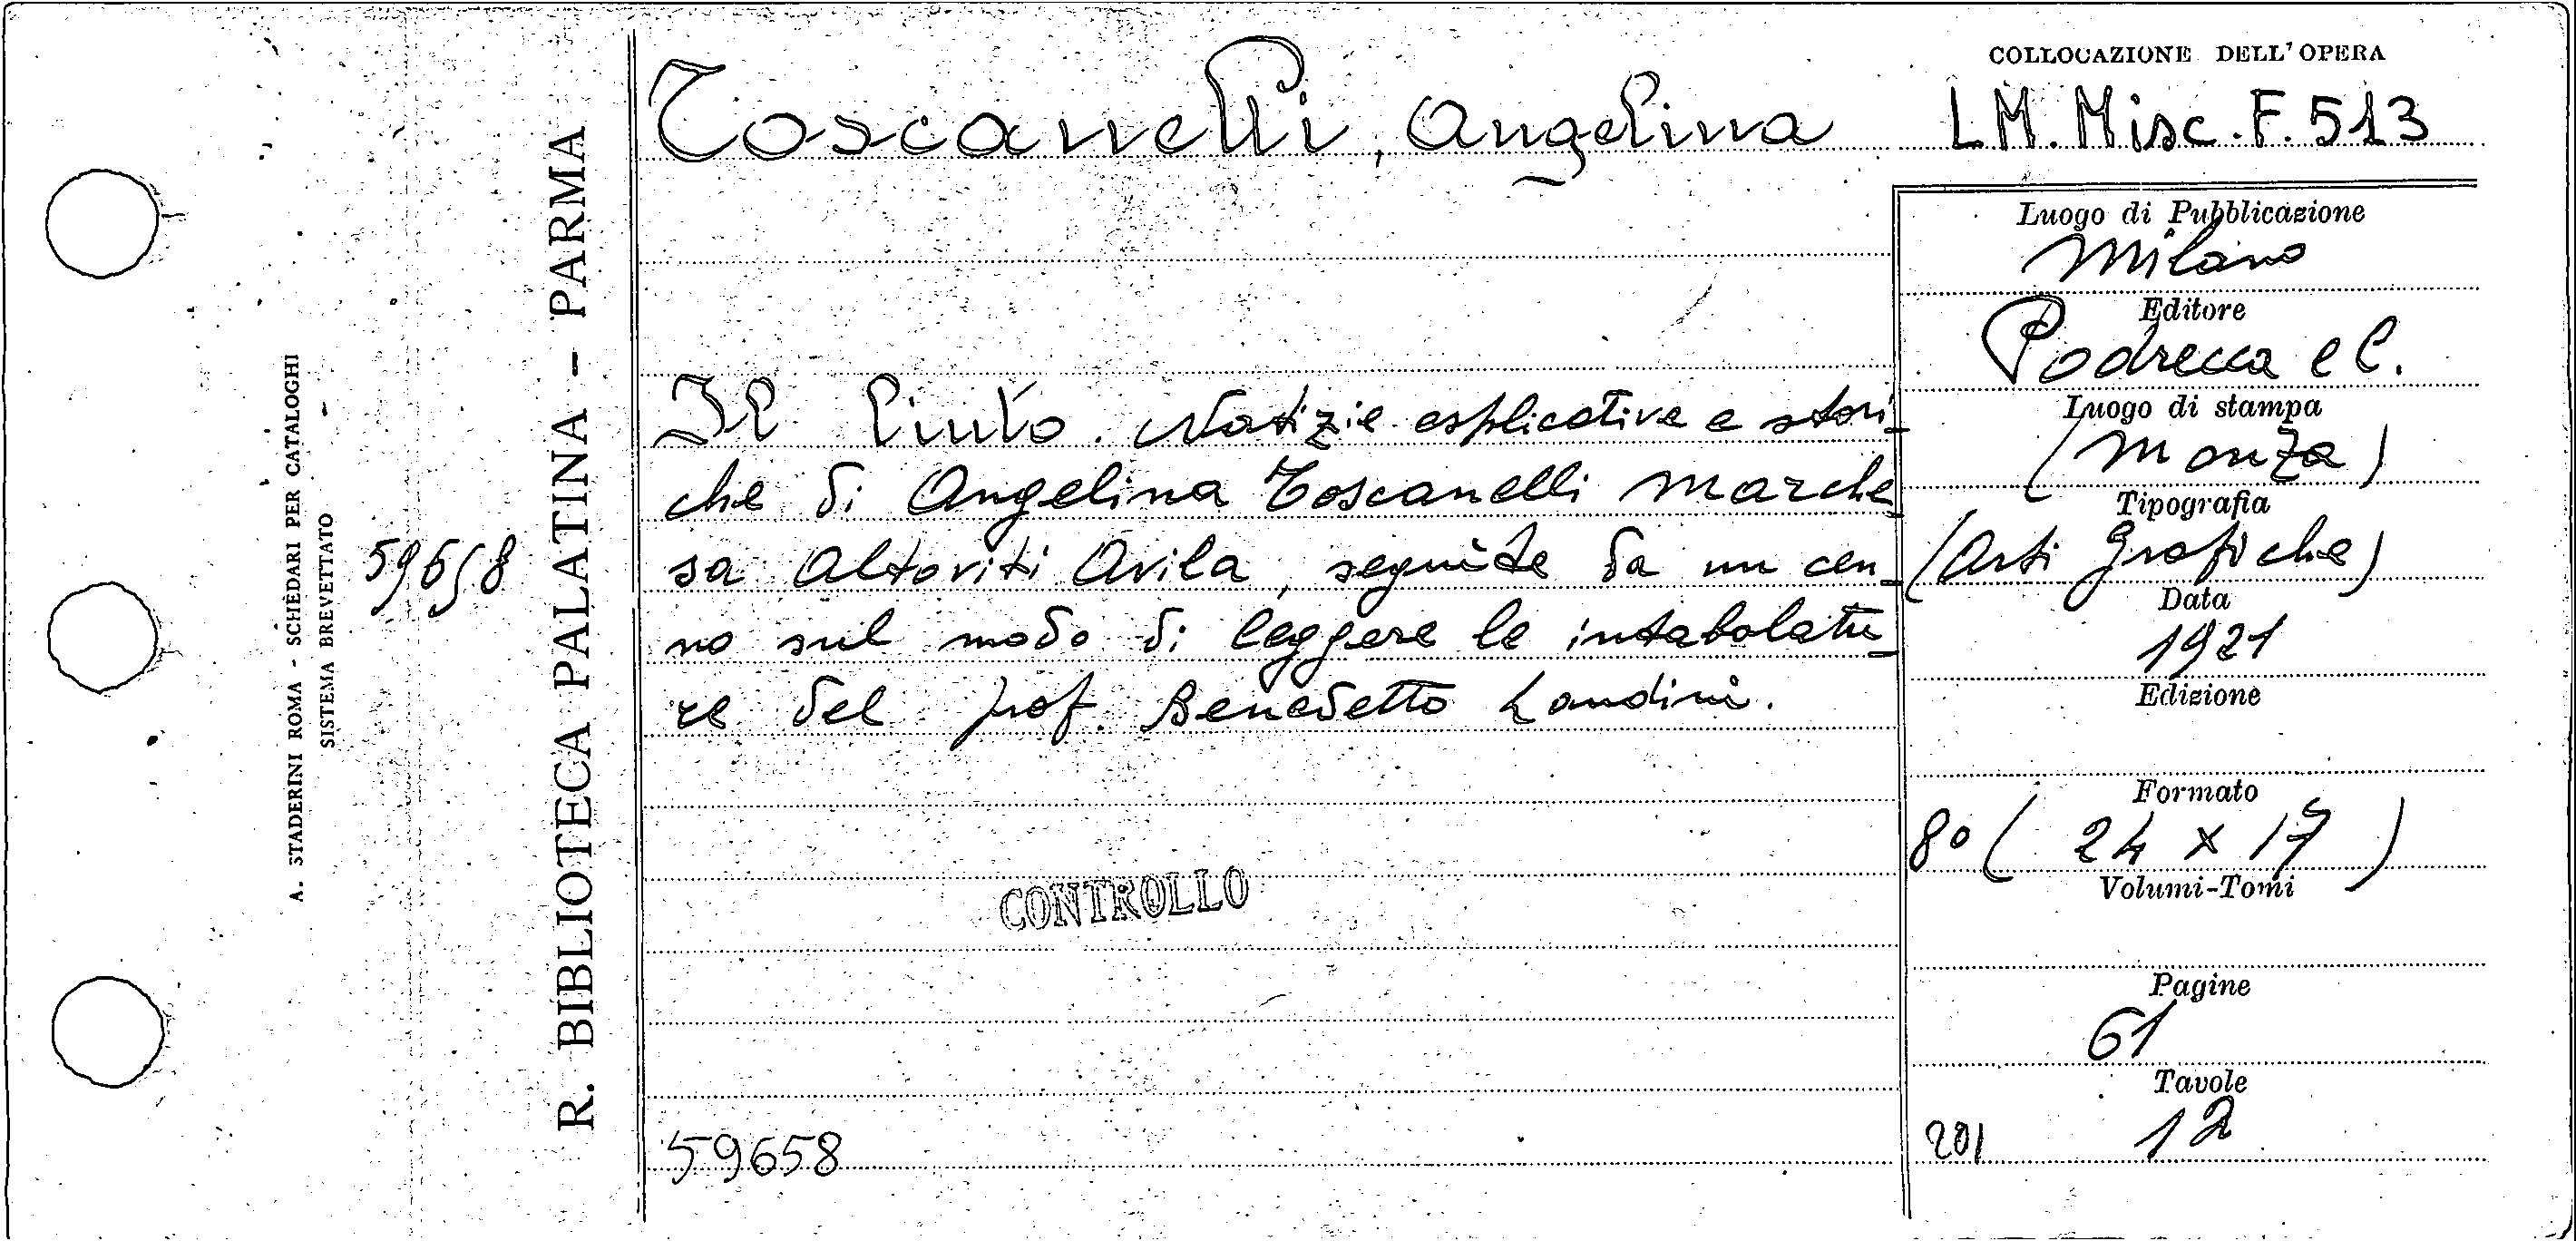 COLLOCAZIONE DELL'OPERA
Toscanelli, Angelina
LM. Misc. F. 513
Il liuto. Notizie esplicative e stori-
che di Angelina Toscanelli Marche-
sa Altoviti Avila, seguite da un cen-
no sul modo di leggere le intabolatu-
re del prof. Benedetto Landini.
CONTROLLO
59658
Luogo di Pubblicazione
Milano
Editore
Podrecca e C.
Luogo di stampa
(Monza)
Tipografia
(Arti Grafiche)
Data
1921
Edizione
Formato
8º (24 x 17)
Volumi-Tomi
Pagine
61
Tavole
201 12
R. BIBLIOTECA PALATINA - PARMA
59658
A. STADERINI ROMA - SCHEDARI PER CATALOGHI
SISTEMA BREVETTATO